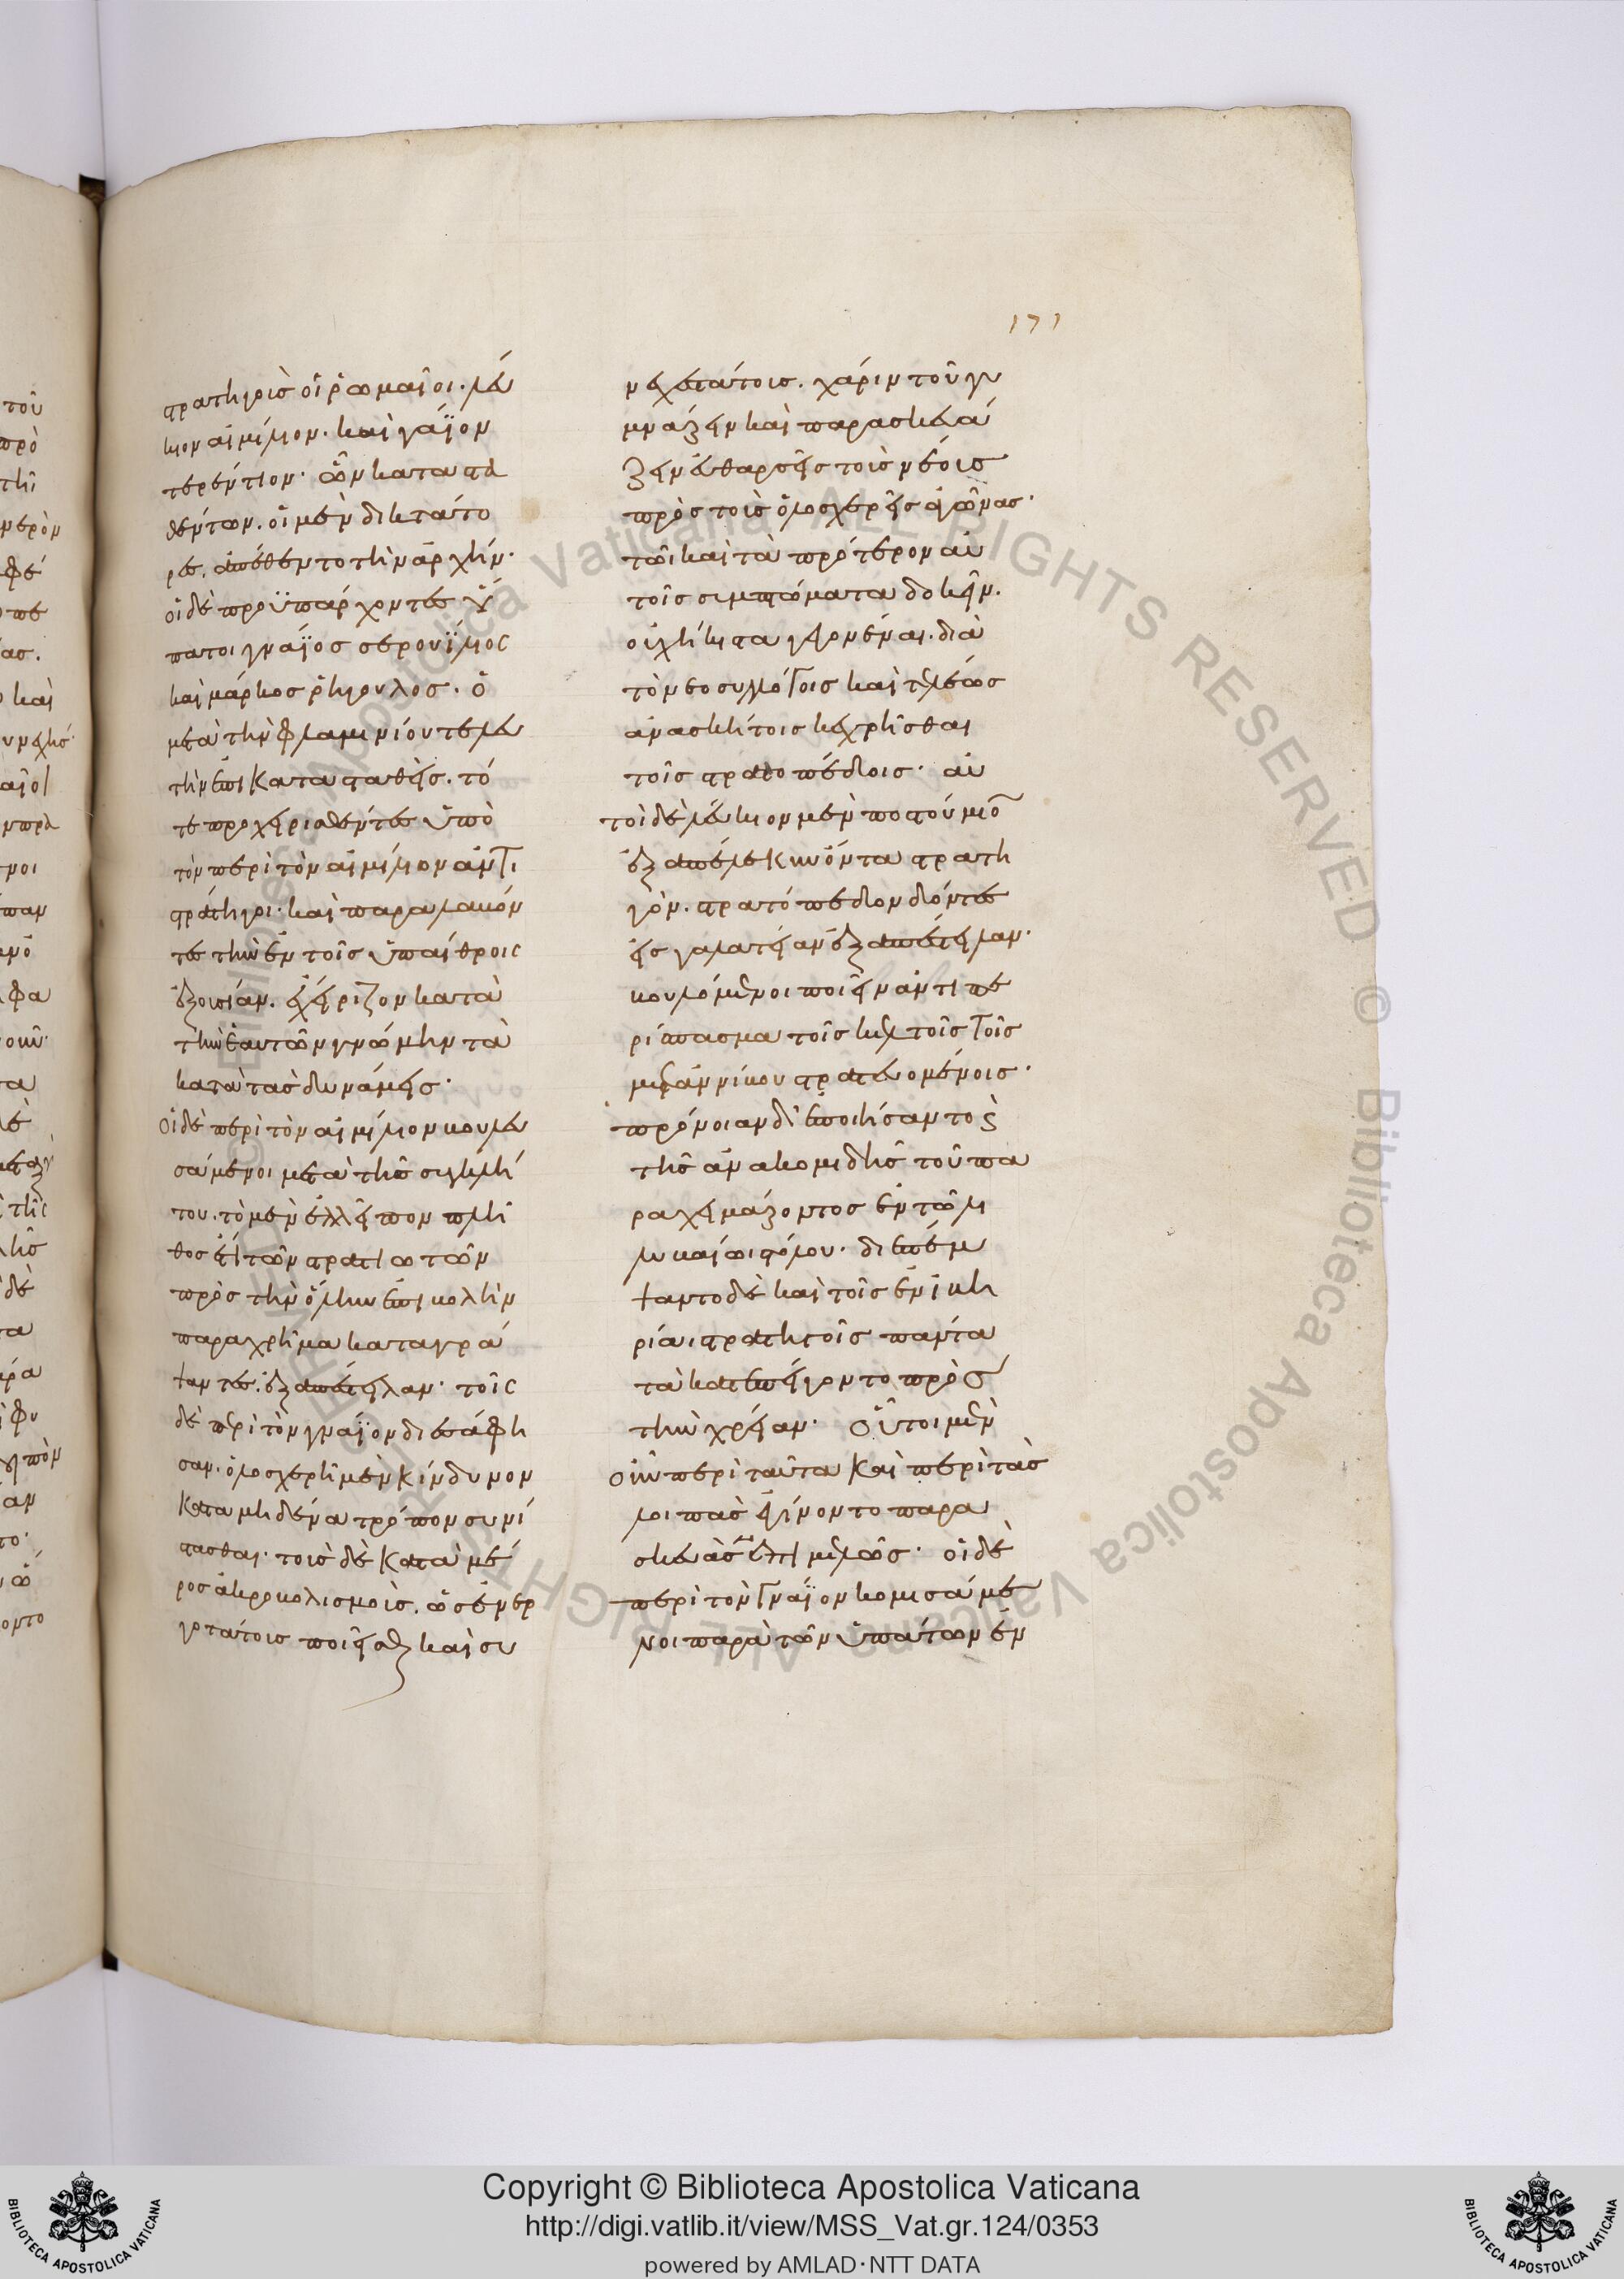 171
στρατηγοὺσ οἱ ῥωμαῖοι. λεύ
κιον αἰμίλιον. καὶ γάϊον
τερέντιον. ὧν καταστα
θέντων. οἱ μὲν δικτάτο
ρεσ. ἀπέθεντο τὴν ἀρχήν.
οἱ δὲ προϋπάρχοντεσ ὕ
πατοι γνάϊοσ σερουΐλιοσ
καὶ μάρκοσ ῥήγουλοσ. ὁ
μετὰ τὴν φλαμινίου τελευ
τὴν ἐπικατασταθείσ. τό
τε προχειρισθέντεσ ὑπὸ
τὸν περὶ τὸν αἰμίλιον ἀντι
στράτηγοι. καὶ παραλαβόν
τεσ τὴν ἐν τοῖσ ὑπαίθροισ
ἐξουσίαν. ἐχείριζον κατὰ
τὴν ἑαυτῶν γνώμην τὰ
κατὰ τὰσ δυνάμεισ.
Οἱ δὲ περὶ τὸν αἰμίλιον βουλευ
σάμενοι μετὰ τῆσ συγκλή
του. τὸ μὲν ἐλλεῖπον πλῆ
θοσ ἔτι τῶν στρατιωτῶν
πρὸσ τὴν ὅλην ἐπιβολὴν
παραχρῆμα καταγρά
ψαντεσ. ἐξαπέστειλαν. τοῖσ
δὲ περὶ τὸν γνάϊον διεσάφη
σαν. ὁλοσχερῆ μὲν κίνδυνον
κατα μηδένα τρόπον συνί
στασθαι. τοὺσ δὲ κατὰ μέ
ροσ ἀκροβολισμοὺσ. ὡσ ἐνερ
γοτάτουσ ποιεῖσθαι καὶ συ
νεχεστάτουσ. χάριν τοῦ γυ
μνάζειν καὶ παρασκευά
ζειν εὐθαρσεῖσ τοὺσ νέουσ
πρὸσ τοὺσ ὁλοσχερεῖσ ἀγῶνασ.
τῶι καὶ τὰ πρότερον αὐ
τοῖσ συμπτώματα δοκεῖν.
οὐχ ἥκιστα γεγονέναι. διὰ
τὸ νεοσυλλόγοισ καὶ τελέωσ
ἀνασκήτοισ κεχρῆσθαι
τοῖσ στρατοπέδοισ. αὐ
τοὶ δὲ λεύκιον μὲν ποστούμιο
ἑξαπέλεκυν ὄντα στρατη
γὸν. στρατόπεδον δόντεσ
εἰσ γαλατείαν ἐξαπέστειλαν.
βουλόμενοι ποιεῖν ἀντιπε
ρίσπασμα τοῖσ κελτοῖσ τοῖσ
μετ ἀννίβου στρατευομένοισ.
πρόνοιαν δ᾽ ἐποιήσαντο καὶ
τῆσ ἀνακομιδῆσ τοῦ πα
ραχειμάζοντοσ ἐν τῶι λι
λυβαίωι στόλου. διεπέμ
ψαντο δὲ καὶ τοῖσ ἐν ἰβη
ρίαι στρατηγοῖσ πάντα
τὰ κατεπείγοντο πρὸσ
τὴν χρείαν. Οὗτοι μὲν
οὖν περὶ ταῦτα καὶ περὶ τὰσ
λοιπὰσ ἐγίνοντο παρα
σκευὰσ ἐπιμελῶσ. οἱ δὲ
περὶ τὸν Γνάϊον κομισάμε
νοι παρὰ τῶν ὑπάτων ἐν
Copyright © Biblioteca Apostolica Vaticana
http://digi.vatlib.it/view/MSS_Vat.gr.124/0353
powered by AMLAD·NTT DATA
BIBLIOTECA APOSTOLICA VATICANA
BIBLIOTECA APOSTOLICA VATICANA